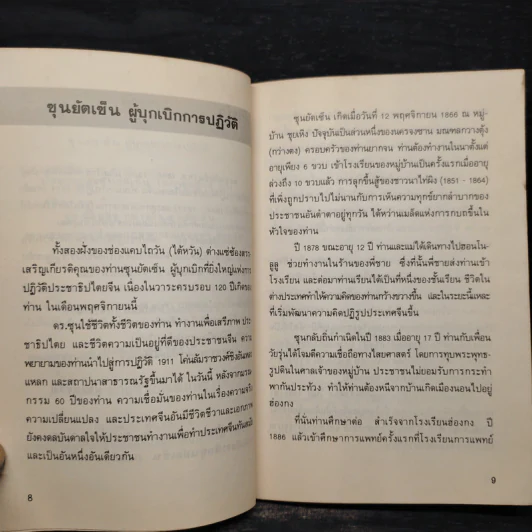 ซุนยัตเซ็น ผู้บุกเบิกการปฏิวัติ
ทั้งสองฝั่งของช่องแคบไถวัน (ไต้หวัน) ต่างแซ่ซ้อง
เสริญเกียรติคุณของท่านซุนยัตเซ็น ผู้บุกเบิกที่ยิ่งใหญ่แห่งการ
ปฏิวัติประชาธิปไตยจีน เนื่องในวาระครบรอบ 120 ปีเกิดของ
ท่าน ในเดือนพฤศจิกายนนี้
ดร.ซุนใช้ชีวิตทั้งชีวิตของท่าน ทำงานเพื่อเสรีภาพ ประ
ชาธิปไตย และชีวิตความเป็นอยู่ที่ดีของประชาชนจีน ความ
พยายามของท่านนำไปสู่การปฏิวัติ 1911 โค่นล้มราชวงศ์ชิงอัน
แหลก และสถาปนาสาธารณรัฐขึ้นมาได้ ในวันนี้ หลังจาก
กรรม 60 ปีของท่าน ความเชื่อมั่นของท่านในเรื่องความ
ความเปลี่ยนแปลง และประเทศจีนอันมีชีวิตชีวาและเอกภาพ
ยังคงดลบันดาลใจให้ประชาชนทำงานเพื่อทำประเทศจีนทันสมัย
และเป็นอันหนึ่งอันเดียวกัน
8
ซุนยัตเซ็น เกิดเมื่อวันที่ 12 พฤศจิกายน 1866 ณ หมู่-
บ้าน ชุยเหิง ปัจจุบันเป็นส่วนหนึ่งของนครจงซาน มณฑลกวางตุ้ง
(กว่างตง) ครอบครัวของท่านยากจน ท่านต้องทำงานในนาตั้งแต่
อายุเพียง 6 ขวบ เข้าโรงเรียนของหมู่บ้านเป็นครั้งแรกเมื่ออายุ
ล่วงถึง 10 ขวบแล้ว การลุกขึ้นสู้ของชาวนาไท่ผิง (1851 - 1864)
ที่เพิ่งถูกปราบไปไม่นานกับการเห็นความทุกข์ยากลำบากของ
ประชาชนอันดำดาอยู่ทุกวัน ได้หว่านเมล็ดแห่งการกบถขึ้นใน
หัวใจของท่าน
ปี 1878 ขณะอายุ 12 ปี ท่านและแม่ได้เดินทางไปฮอนโน-
ลูลู ช่วยทำงานในร้านของพี่ชาย ซึ่งที่นั้นพี่ชายส่งท่านเข้า
โรงเรียน และต่อมาท่านเรียนได้เป็นที่หนึ่งของชั้นเรียน ชีวิตใน
ต่างประเทศทำให้ความคิดของท่านกว้างขวางขึ้น และในระยะนี้เหละ
ที่เริ่มพัฒนาความคิดปฏิรูปประเทศจีนขึ้น
ซุนกลับถิ่นกำเนิดในปี 1883 เมื่ออายุ 17 ปี ท่านกับเพื่อน
วัยรุ่นได้โจมตีความเชื่อถือทางไสยศาสตร์ โดยการทุบพระพุทธ-
รูปดินในศาลเจ้าของหมู่บ้าน ประชาชนไม่ยอมรับการกระทำ
พากันประท้วง ทำให้ท่านต้องหนีจากบ้านเกิดเมืองนอนไปอยู่
ฮ่องกง
ที่นั่นท่านศึกษาต่อ สำเร็จจากโรงเรียนฮ่องกง ปี
1886 แล้วเข้าศึกษาการแพทย์ครั้งแรกที่โรงเรียนการแพทย์
9